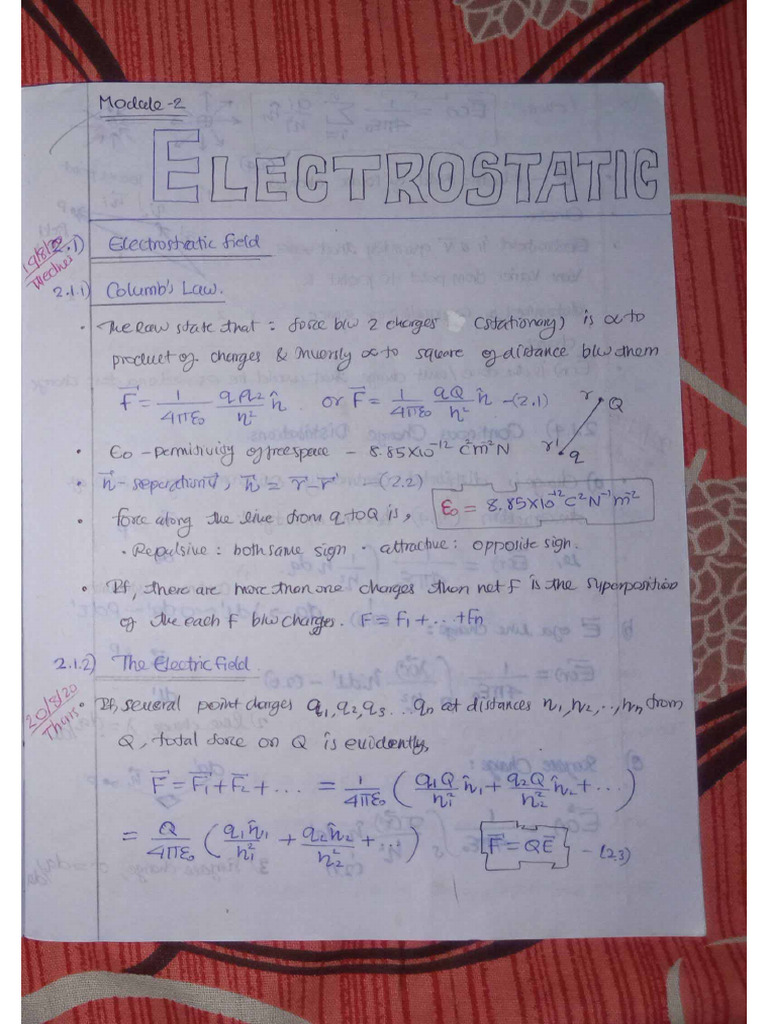 Module-2
ELECTROSTATIC
19/8/20 Wednes
2.1) Electrostatic field
2.1.1) Columb's Law.
• The law state that: force b/w 2 charges (stationary) is ∝ to
product of charges & inversly ∝ to square of distance b/w them
F⃗ = 1/4πε₀ q₁q₂/r² r̂ or F⃗ = 1/4πε₀ qQ/r² r̂ -(2.1)
r Q
r' q
• ε₀ - permitivity of free space - 8.85X10⁻¹² C²m⁻²N
• r⃗ - separation v⃗, r⃗ = r - r' -(2.2)
ε₀ = 8.85X10⁻¹² C²N⁻¹m⁻²
• force along the line from q to Q is,
• Repulsive: both same sign • attractive: opposite sign.
• If, there are more than one charges than net F is the superposition
of the each F b/w charges. F = F₁+...+Fn
2.1.2) The Electric field.
20/8/20 Thurs
• If, several point charges q₁,q₂,q₃...qn at distances r₁,r₂,..,rn from
Q, total force on Q is evidently,
F⃗ = F⃗₁+F⃗₂+... = 1/4πε₀ (q₁Q/r₁² r̂₁ + q₂Q/r₂² r̂₂ +...)
= Q/4πε₀ (q₁r̂₁/r₁² + q₂r̂₂/r₂² +...) F⃗ = QE⃗ -(2.3)